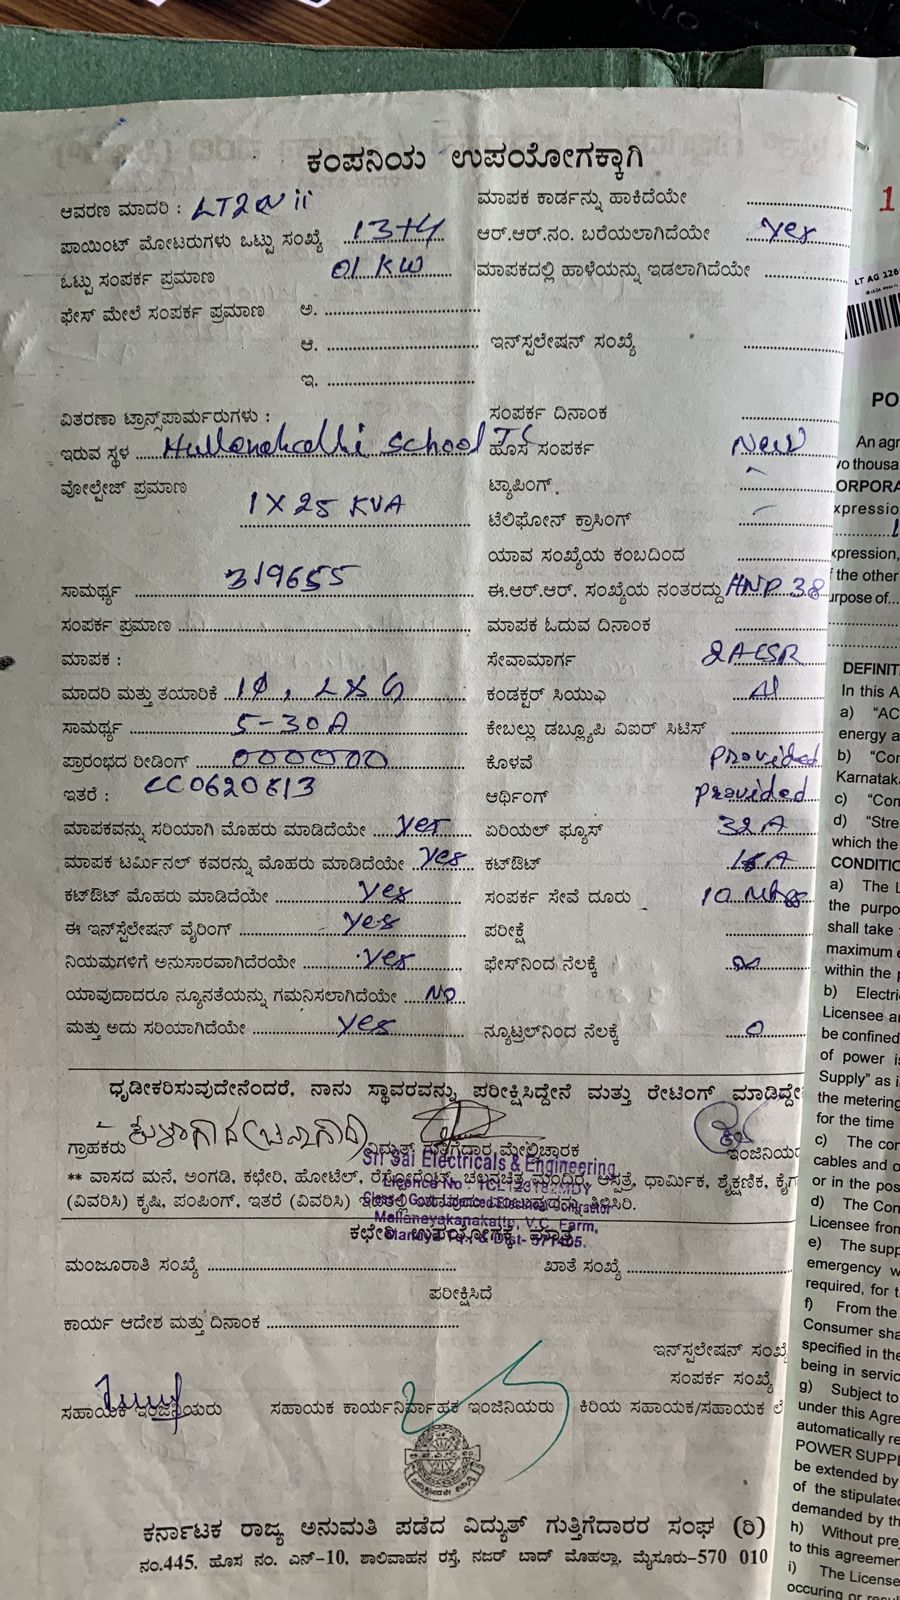 ಕಂಪನಿಯ ಉಪಯೋಗಕ್ಕಾಗಿ
ಆವರಣ ಮಾದರಿ : LT2 ii ಮಾಪಕ ಕಾರ್ಡನ್ನು ಹಾಕಿದೆಯೇ
ಪಾಯಿಂಟ್ ಮೋಟರುಗಳು ಒಟ್ಟು ಸಂಖ್ಯೆ 13+4 ಆರ್.ಆರ್.ನಂ. ಬರೆಯಲಾಗಿದೆಯೇ yes
ಒಟ್ಟು ಸಂಪರ್ಕ ಪ್ರಮಾಣ 01 KW ಮಾಪಕದಲ್ಲಿ ಹಾಳೆಯನ್ನು ಇಡಲಾಗಿದೆಯೇ
ಫೇಸ್ ಮೇಲೆ ಸಂಪರ್ಕ ಪ್ರಮಾಣ ಅ.
ಆ. ಇನ್‌ಸ್ಪಲೇಷನ್ ಸಂಖ್ಯೆ
ಇ.
ವಿತರಣಾ ಟ್ರಾನ್ಸ್‌ಪಾರ್ಮರುಗಳು : ಸಂಪರ್ಕ ದಿನಾಂಕ
ಇರುವ ಸ್ಥಳ School ಹೊಸ ಸಂಪರ್ಕ New
ವೋಲ್ಟೇಜ್ ಪ್ರಮಾಣ 1 X 25 KVA ಟ್ಯಾಪಿಂಗ್.
ಟೆಲಿಫೋನ್ ಕ್ರಾಸಿಂಗ್
ಯಾವ ಸಂಖ್ಯೆಯ ಕಂಬದಿಂದ
ಸಾಮರ್ಥ್ಯ 319655 ಈ.ಆರ್.ಆರ್. ಸಂಖ್ಯೆಯ ನಂತರದ್ದು HNP 38
ಸಂಪರ್ಕ ಪ್ರಮಾಣ ಮಾಪಕ ಓದುವ ದಿನಾಂಕ
ಮಾಪಕ : ಸೇವಾಮಾರ್ಗ 2ACSR
ಮಾದರಿ ಮತ್ತು ತಯಾರಿಕೆ 1Φ, L X G ಕಂಡಕ್ಟರ್ ಸಿಯುಎ Al
ಸಾಮರ್ಥ್ಯ 5-30A ಕೇಬಲ್ಲು ಡಬ್ಲ್ಯೂಪಿ ವಿಐರ್ ಸಿಟಿಸ್
ಪ್ರಾರಂಭದ ರೀಡಿಂಗ್ 000000 ಕೊಳವೆ provided
ಇತರೆ : ಆರ್ಥಿಂಗ್ provided
ಮಾಪಕವನ್ನು ಸರಿಯಾಗಿ ಮೊಹರು ಮಾಡಿದೆಯೇ yes ಏರಿಯಲ್ ಫ್ಯೂಸ್ 32 A
ಮಾಪಕ ಟರ್ಮಿನಲ್ ಕವರನ್ನು ಮೊಹರು ಮಾಡಿದೆಯೇ yes ಕಟ್‌ಔಟ್
ಕಟ್‌ಔಟ್ ಮೊಹರು ಮಾಡಿದೆಯೇ yes ಸಂಪರ್ಕ ಸೇವೆ ದೂರು 10
ಈ ಇನ್‌ಸ್ಪೆಲೇಷನ್ ವೈರಿಂಗ್ yes ಪರೀಕ್ಷೆ
ನಿಯಮಗಳಿಗೆ ಅನುಸಾರವಾಗಿದೆರಯೇ yes ಫೇಸ್‌ನಿಂದ ನೆಲಕ್ಕೆ ∞
ಯಾವುದಾದರೂ ನ್ಯೂನತೆಯನ್ನು ಗಮನಿಸಲಾಗಿದೆಯೇ No
ಮತ್ತು ಅದು ಸರಿಯಾಗಿದೆಯೇ yes ನ್ಯೂಟ್ರಲ್‌ನಿಂದ ನೆಲಕ್ಕೆ 0
ಧೃಡೀಕರಿಸುವುದೇನೆಂದರೆ, ನಾನು ಸ್ಥಾವರವನ್ನು ಪರೀಕ್ಷಿಸಿದ್ದೇನೆ ಮತ್ತು ರೇಟಿಂಗ್ ಮಾಡಿದ್ದೇ
ಗ್ರಾಹಕರು ವಿದ್ಯುತ್ ಗುತ್ತಿಗೆದಾರ ಮೇಲ್ವಿಚಾರಕ ಇಂಜಿನಿಯ
Sri Sai Electricals & Engineering
** ವಾಸದ ಮನೆ, ಅಂಗಡಿ, ಕಛೇರಿ, ಹೋಟೆಲ್, ರೆಸ್ಟೋರೆಂಟ್, ಚಲನಚಿತ್ರ ಮಂದಿರ, ಆಸ್ಪತ್ರೆ, ಧಾರ್ಮಿಕ, ಶೈಕ್ಷಣಿಕ, ಕೈಗ
(ವಿವರಿಸಿ) ಕೃಷಿ, ಪಂಪಿಂಗ್, ಇತರೆ (ವಿವರಿಸಿ) ತಿಳಿಸಿರಿ.
Mallanayakanakatte, V.C. Farm,
Mandya Tq. & Dist- 571405.
ಕಛೇರಿ ಉಪಯೋಗಕ್ಕೆ ಮಾತ್ರ
ಮಂಜೂರಾತಿ ಸಂಖ್ಯೆ ಖಾತೆ ಸಂಖ್ಯೆ
ಪರೀಕ್ಷಿಸಿದೆ
ಕಾರ್ಯ ಆದೇಶ ಮತ್ತು ದಿನಾಂಕ
ಇನ್‌ಸ್ಪಲೇಷನ್ ಸಂಖ್ಯೆ
ಸಂಪರ್ಕ ಸಂಖ್ಯೆ
ಸಹಾಯಕ ಇಂಜಿನಿಯರು ಸಹಾಯಕ ಕಾರ್ಯನಿರ್ವಾಹಕ ಇಂಜಿನಿಯರು ಕಿರಿಯ ಸಹಾಯಕ/ಸಹಾಯಕ ಲೆ
ಕರ್ನಾಟಕ ರಾಜ್ಯ ಅನುಮತಿ ಪಡೆದ ವಿದ್ಯುತ್ ಗುತ್ತಿಗೆದಾರರ ಸಂಘ (ರಿ)
ನಂ.445, ಹೊಸ ನಂ. ಎನ್-10, ಶಾಲಿವಾಹನ ರಸ್ತೆ, ನಜರ್ ಬಾದ್ ಮೊಹಲ್ಲಾ, ಮೈಸೂರು-570 010
1
LT AG 126
PO
An agr
vo thousa
ORPORA
xpression
xpression,
f the other
urpose of...
DEFINIT
In this A
a) "AC
energy a
b) "Cor
Karnatak
c) "Con
d) "Stre
which the
CONDITIO
a) The L
the purpo
shall take
maximum e
within the p
b) Electri
Licensee ar
be confined
of power is
Supply" as i
the metering
for the time
c) The cor
cables and o
or in the pos
d) The Con
Licensee from
e) The supp
emergency w
required, for t
f) From the
Consumer sha
specified in the
being in servic
g) Subject to
under this Agre
automatically re
POWER SUPPL
be extended by
of the stipulated
demanded by th
h) Without pre
to this agreemen
i) The License
occuring or resul